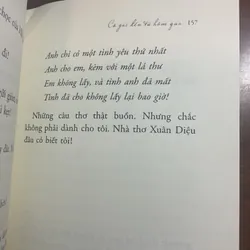 Cô gái đến từ hôm qua 157
Anh chỉ có một tình yêu thứ nhất
Anh cho em, kèm với một lá thư
Em không lấy, và tình anh đã mất
Tình đã cho không lấy lại bao giờ!
Những câu thơ thật buồn. Nhưng chắc
không phải dành cho tôi. Nhà thơ Xuân Diệu
đâu có biết tôi!